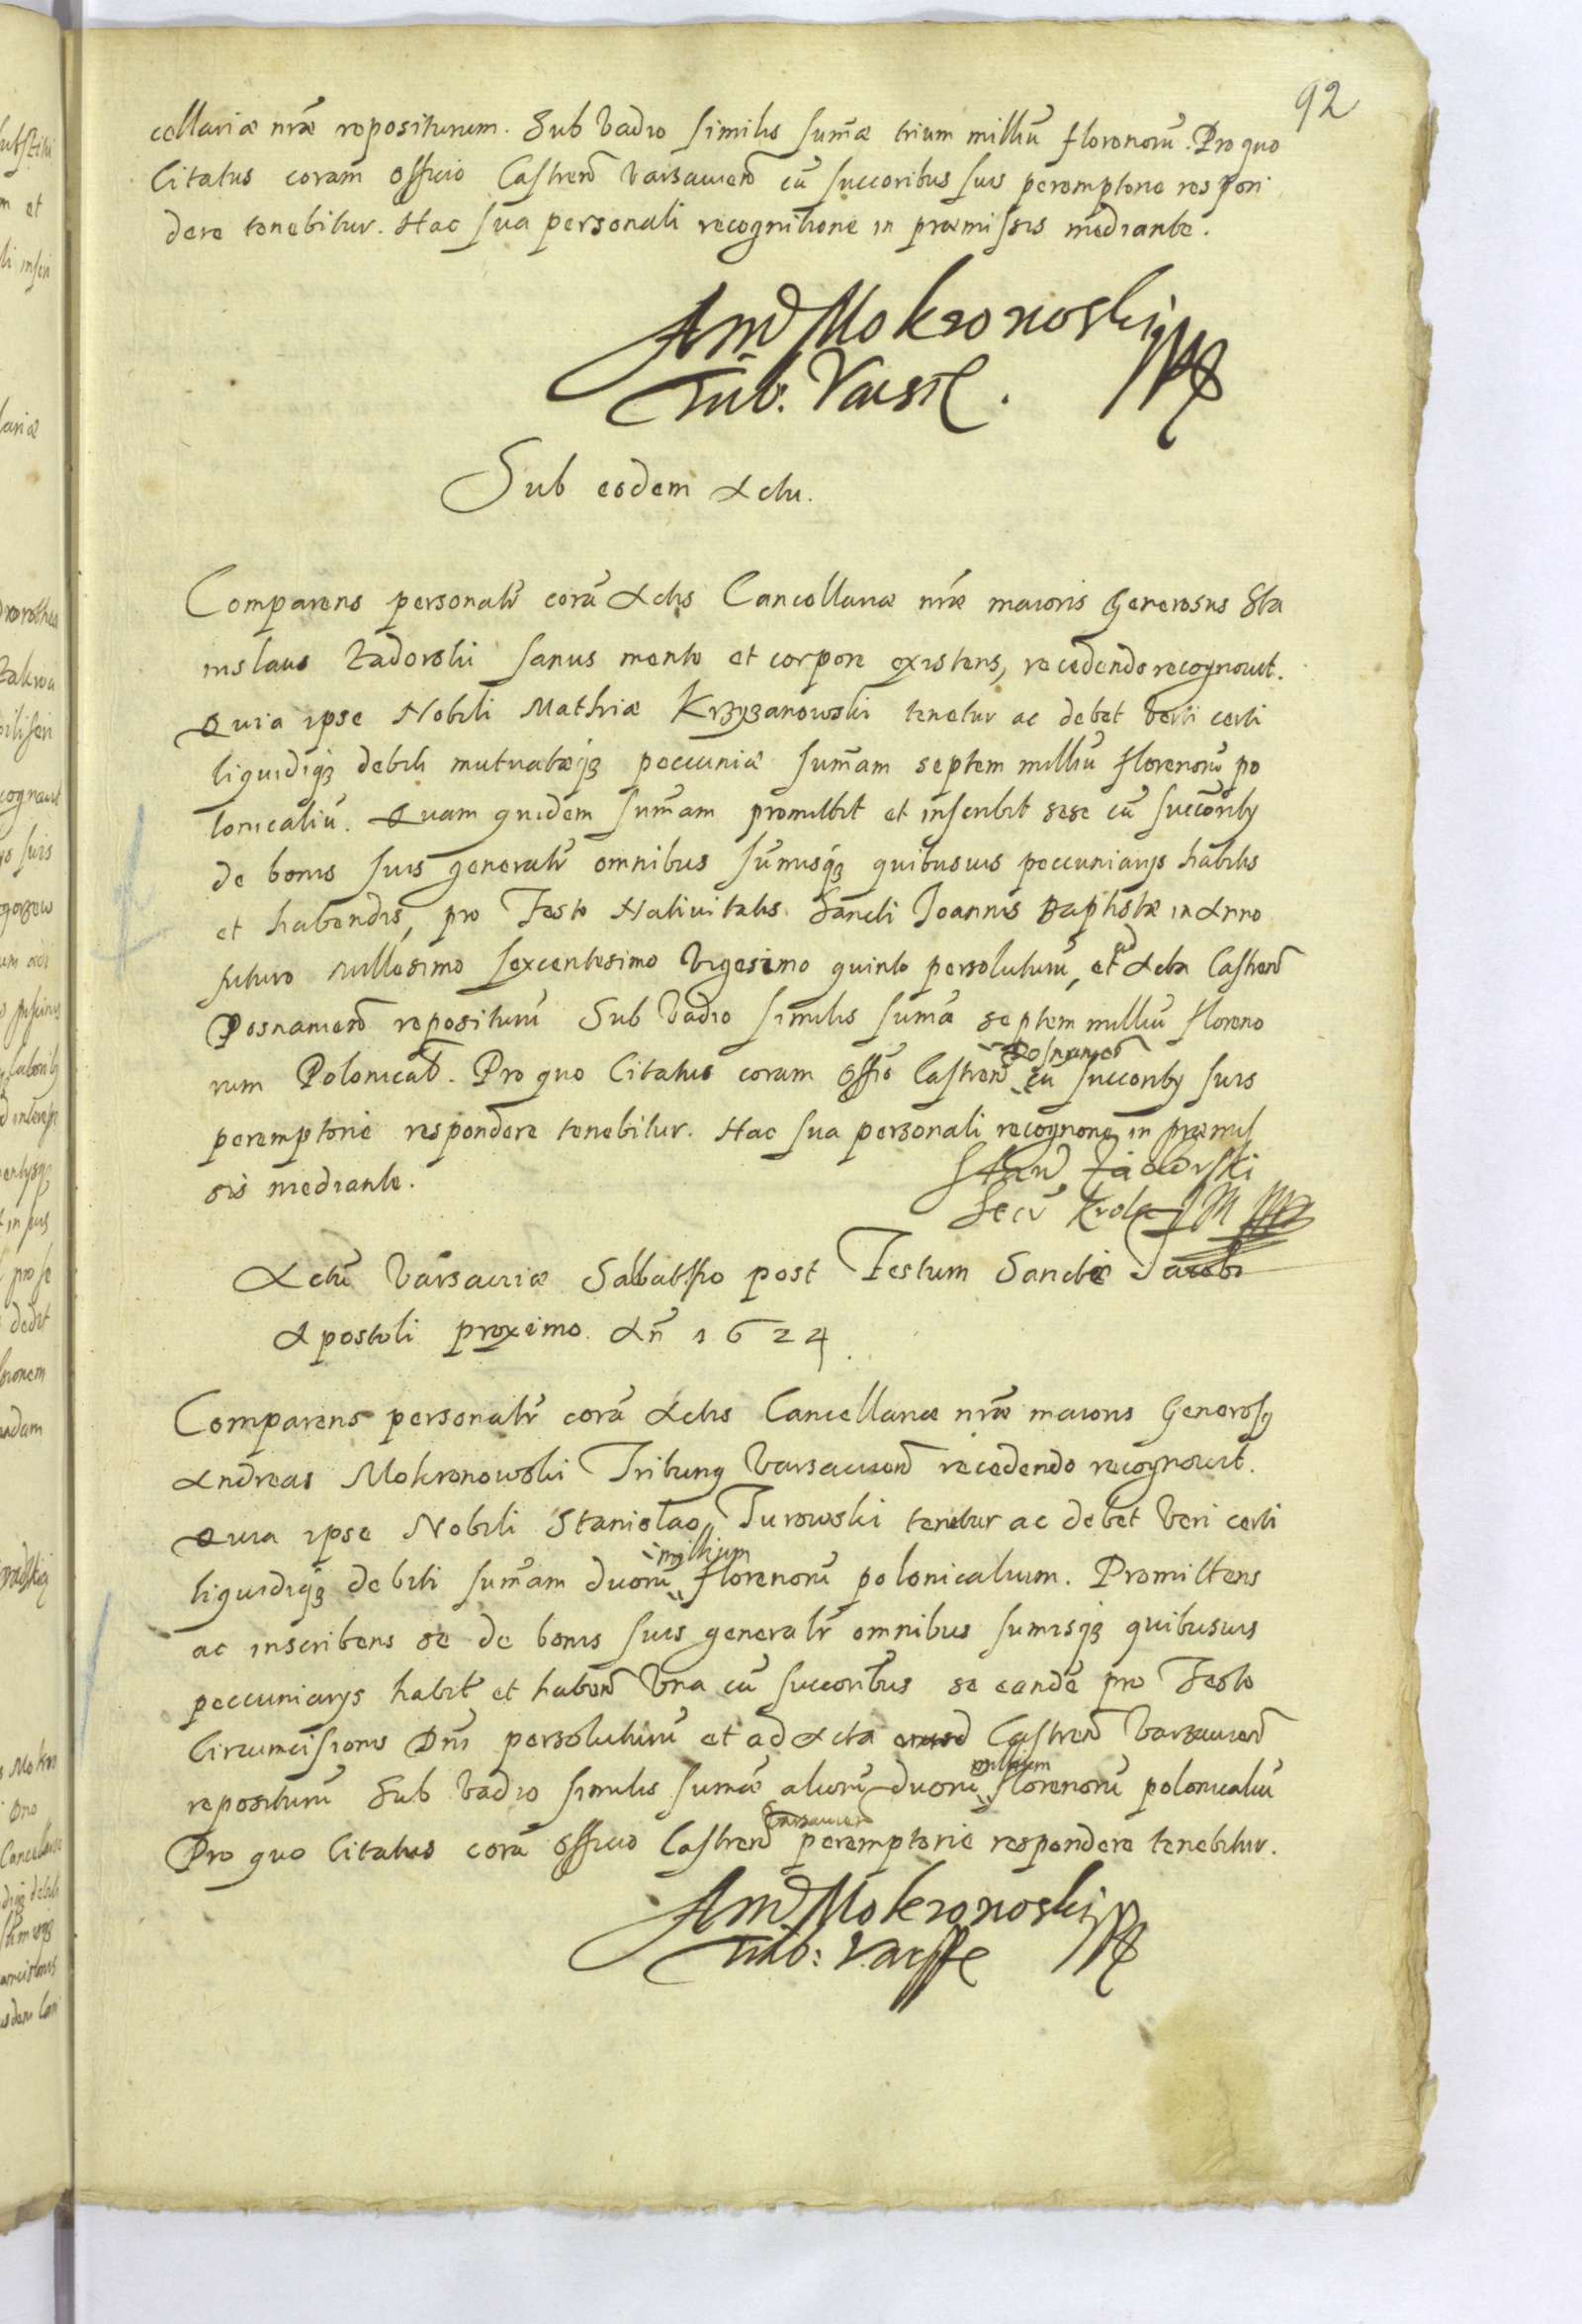 92
cellariæ nr̃æ repositurum. Sub Vadio similis sum̃æ trium milliũ florenorũ. Pro quo
Citatus coram officio Castren̄ Varsavien̄ cũ succoribus suis peremptorie respon
dere tenebitur. Hac sua personali recognitione in præmissis mediante.
And Mokronoski
Trib: Vars
Sub eodem Actu.
Comparens personalr̃ corã Actis Cancellariæ nr̃æ maioris Generosus Sta
nislaus Zadorski sanus mente et corpore existens, recedendo recognovit.
Quia ipse Nobili Mathiæ Krzyzanowski tenetur ac debet veri certi
liquidiqꝫ debiti mutuatæqꝫ pecuniæ sum̃am septem milliũ florenorũ po
lonicaliũ. Quam quidem sum̃am promittit et inscribit sese cũ succoribꝰ
de bonis suis generalr̃ omnibus sum̃isqꝫ quibusuis peccuniarijs habitis
et habendis, pro Festo Natiuitatis Sancti Joannis Baptistæ in Anno
futuro millesimo sexcentesimo Vigesimo quinto persoluturũ, et ad Acta Castren̄
Posnanien̄ repositurũ Sub Vadio similis sum̃æ septem milliũ floreno
rum Polonical̄. Pro quo Citatus coram Offio Castren̄ Posnanien̄ cũ succoribꝰ suis
peremptorie respondere tenebitur. Hac sua personali recognone in præmis
sis mediante.
Stan Zadorski
Secr̃ Krola J M
Actũ Varsaviæ Sabbatho post Festum Sancti Jacobi
Apostoli proximo An̄ 1624.
Comparens personalr̃ corã Actis Cancellariæ nr̃æ maioris Generosꝰ
Andreas Mokronowski Tribunꝰ Varsavien̄ recedendo recognovit.
Quia ipse Nobili Stanislao Turowski tenetur ac debet Veri certi
liquidiqꝫ debiti sum̃am duorũ millium florenorũ polonicalium. Promittens
ac inscribens se de bonis suis generalr̃ omnibus sumisqꝫ quibusuis
peccuniarijs habit̃ et haben̄ Vna cũ succoribus se eandẽ pro Festo
Circumcisionis Dn̄i persoluturũ et ad Acta Castren̄ Varsavien̄
repositurũ Sub Vadio similis sumæ aliorũ duorũ millium florenorũ polonicaliũ
Pro quo Citatus corã Officio Castren̄ Varsavien̄ peremptorie respondere tenebitur.
And Mokronoski
Trib: Varsse